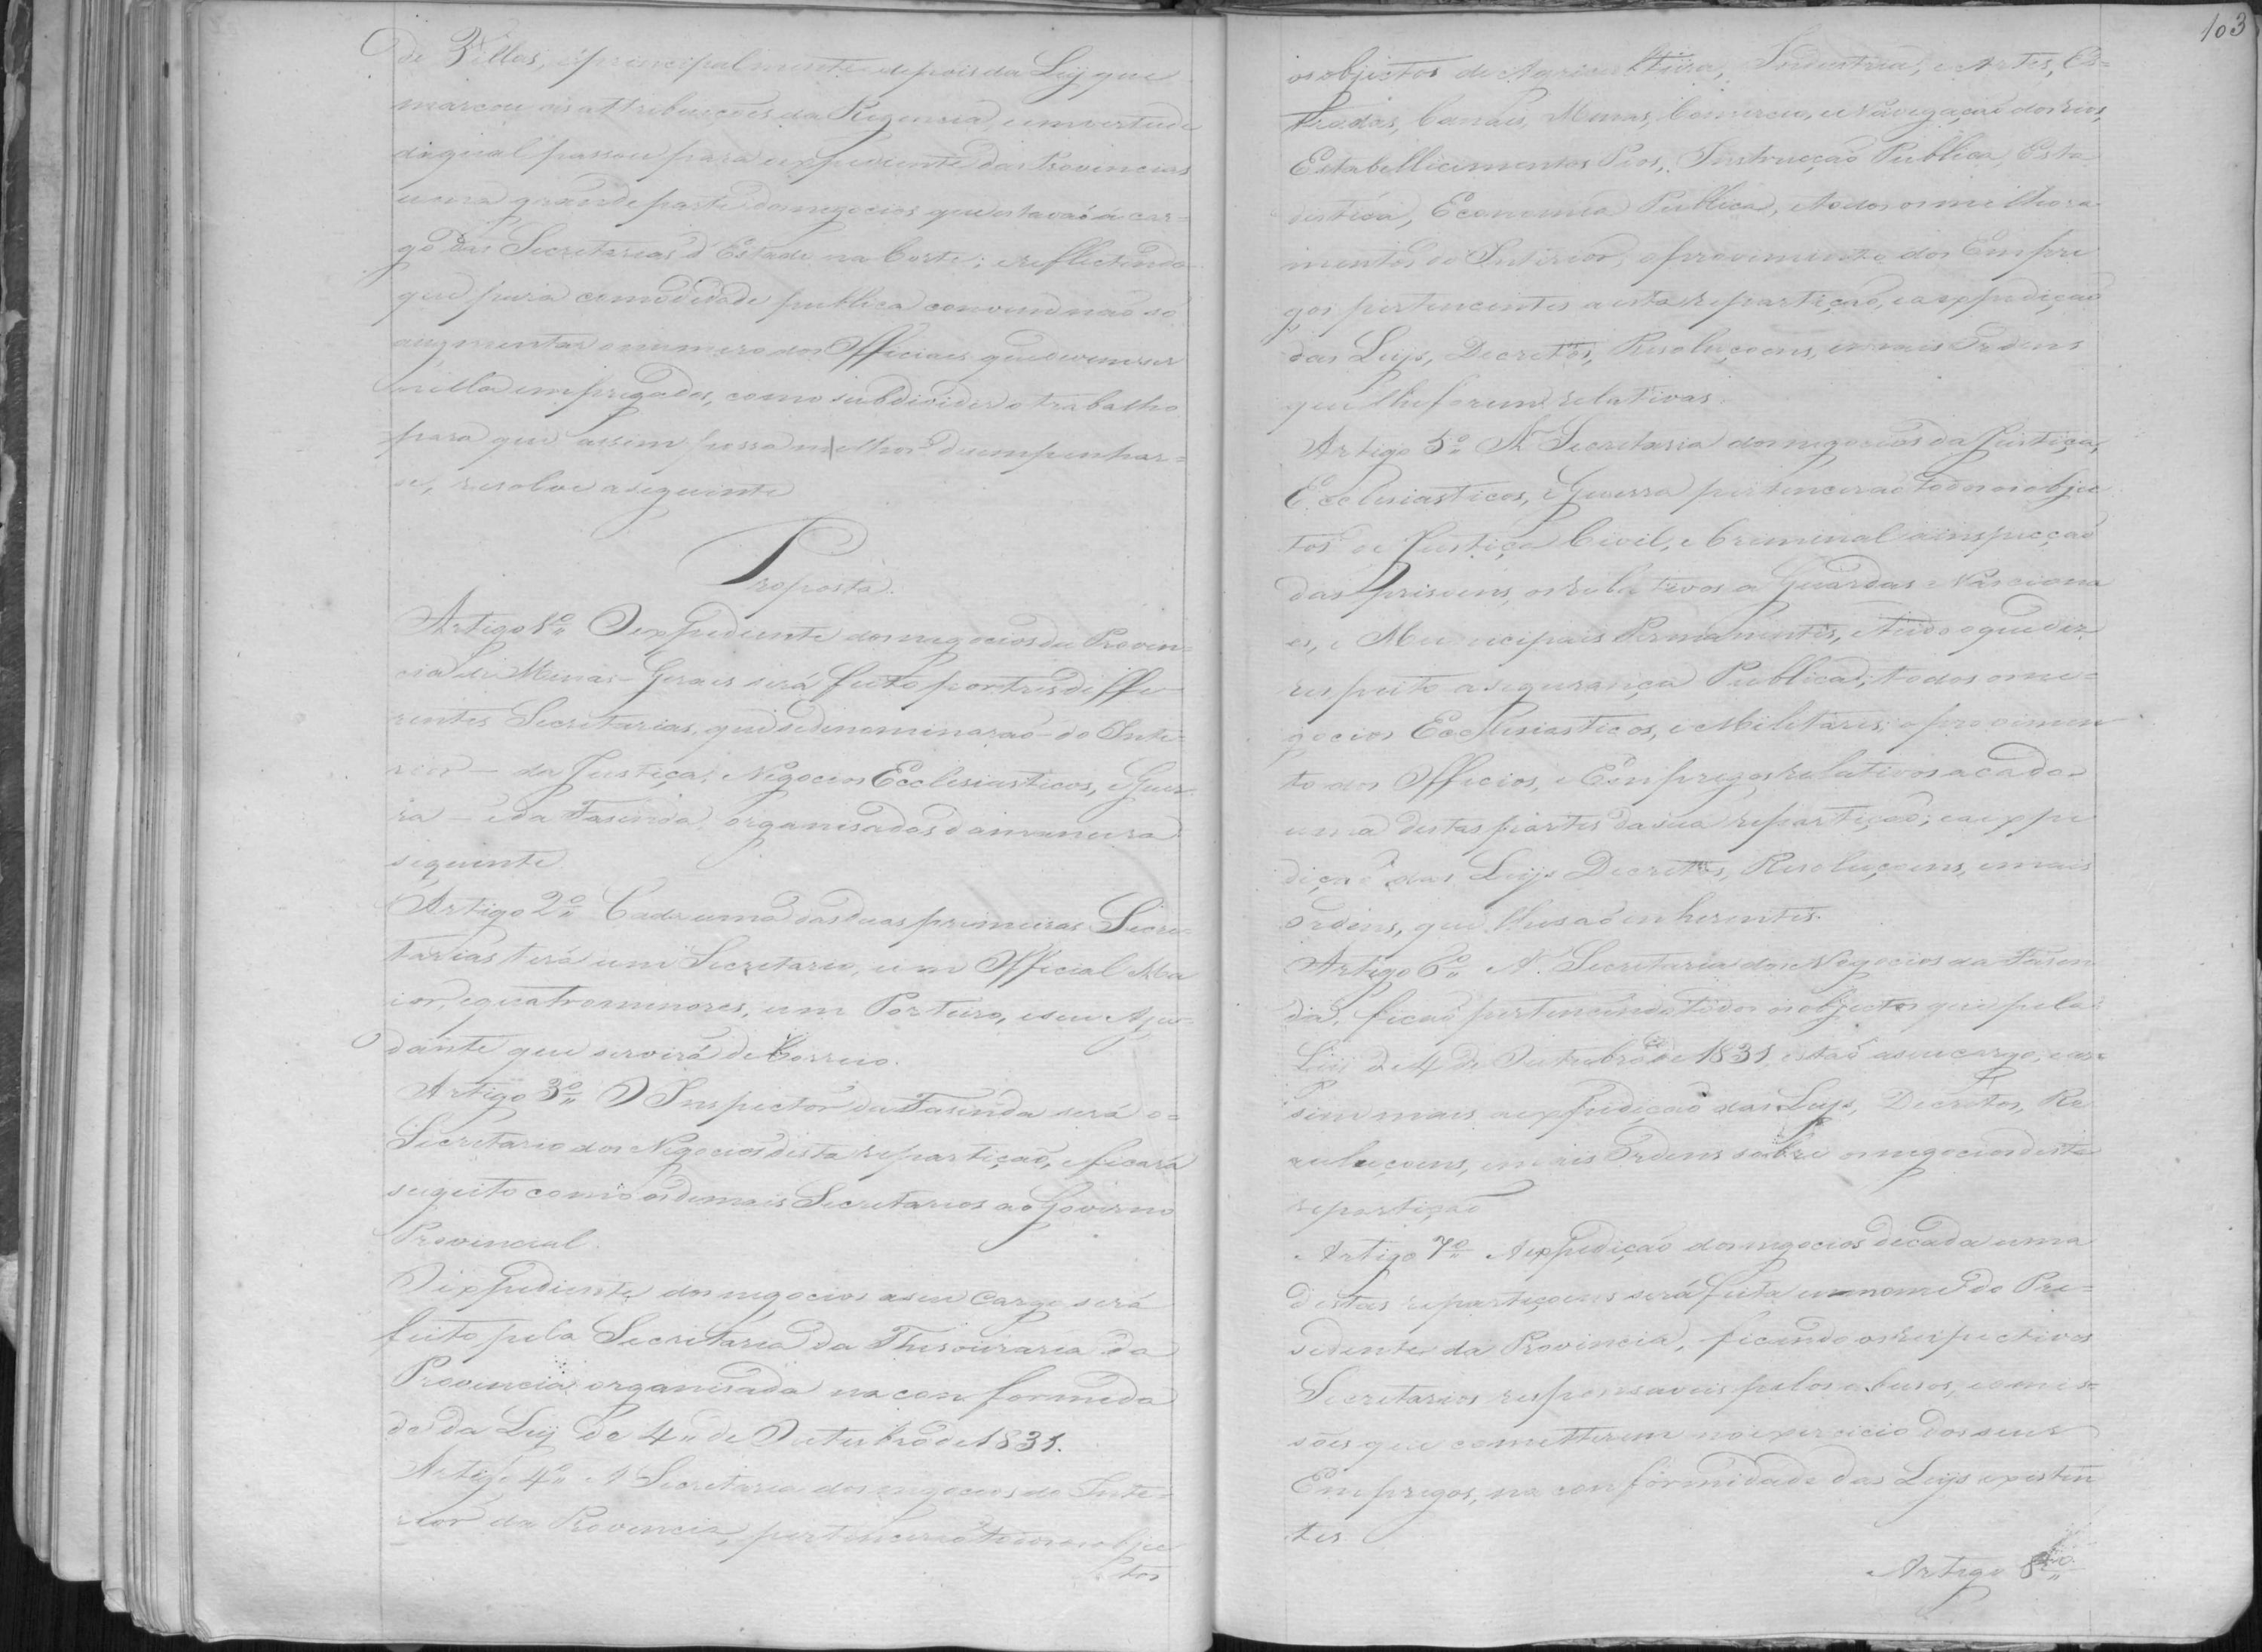 de Villas, e principalmente depois da Ley que
marcou as attribuiçoens da Regencia, em virtude
da qual passou para o expediente das Provincias
uma grande parte dos negocios que estavaõ á car=
go das Secretarias d'Estado na Corte; e reflectindo
que para comodidade publica convem naõ só
augmentar o numero dos Officiaes que devem ser
nella empregados, como subdividir o trabalho
para que assim possa melhor desempenhar=
se, resolve a seguinte
Proposta.
Artigo 1º O expediente dos negocios da Provin=
cia de Minas-Geraes será feito por tres diffe-
rentes Secretarias, que se denominaraõ - do Inte=
rior - da Justiça, Negocios Ecclesiasticos, e Guer-
ra - e da Fasenda, organisadas da maneira
seguinte
Artigo 2º Cada uma das duas primeiras Secre=
tarias terá um Secretario, um Official Ma
ior, e quatro menores, um Porteiro, e seu Aju=
dante que servirá de Correio.
Artigo 3º O Inspector da Fasenda será o=
Secretario dos Negocios desta repartiçaõ, e ficará
sugeito como os demais Secretarios ao Governo
Provincial.
O expediente dos negocios a seu Cargo será
feito pela Secretaria da Thesouraria da
Provincia organisada na conformida
de da Ley de 4 de Outubro de 1831.
Artigo 4º A' Secretaria dos negocios do Inte=
rior da Provincia, pertenceraõ todos os obje
ctos
103
os objectos de Agricultura, Industria, e Artes, Es=
tradas, Canaes, Minas, Comercio, e Navegaçaõ dos rios,
Estabellicimentos Pios, Instrucçaõ Publica, Esta
distica, Economia Publica, e todos os milhora
mentos do Interior, o provimento dos Empre
gos pertencentes a esta repartiçaõ, e a expediçaõ
das Leys, Decretos, Resoluçoens, e mais Ordens
que lhe forem relativas.
Artigo 5º A' Secretaria dos negocios da Justiça,
Ecclesiasticos, e Guerra pertenceraõ todos os objec
tos de Justiça Civil, e Criminal a inspecçaõ
das prisoens, os relativos a Guardas Nacciona
es, e Municipaes Permanentes, e tudo o que diz
respeito a segurança Publica; todos os ne=
gocios Ecclesiasticos, e Militares; o provimen
to dos Officios, e Empregos relativos a cada
uma destas partes da sua repartiçaõ; e a expe
diçaõ das Leys Decretos, Resoluçoens, e mais
Ordens, que lhe saõ inherentes.
Artigo 6º A' Secretaria dos Negocios da Fasen
da, ficaõ pertencendo todos os objectos que pela
Ley de 4 de Outubro de 1831 estaõ a seu cargo, e as=
sim mais a expediçaõ das Leys, Decretos, Re
zoluçoens, e mais Ordens sobre os negocios desta
repartiçaõ
Artigo 7º A expediçaõ dos negocios de cada uma
destas repartiçoens será feita em nome do Pre=
sidente da Provincia, ficando os respectivos
Secretarios responsaveis pelos abusos, e omis=
soẽs que cometterem no exercicio dos seus
Empregos, na conformidade das Leys existen
tes
Artigo 8º